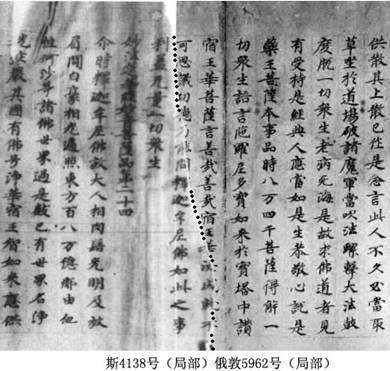 供散其上散已作是念言此人不久必當取
草坐於道場破諸魔軍當吹法䗍擊大法皷
度脫一切衆生老病死海是故求佛道者見
有受持是經典人應當如是生恭敬心說是
藥王菩薩本事品時八万四千菩薩得解一
切衆生語言陁羅尼多寶如來於寶塔中讃
宿王華菩薩言善哉善哉宿王華汝成就不
可思議功德乃能問釋迦牟尼佛如此之事
利益无量一切衆生
妙法蓮華經妙音菩薩品第二十四
尒時釋迦牟尼佛放大人相肉髻光明及放
眉間白豪相光遍照東方百八万億那由他
恒河沙等諸佛世界過是數已有世界名淨
光莊嚴其國有佛号淨華宿王智如來應供
斯4138号（局部）俄敦5962号（局部）